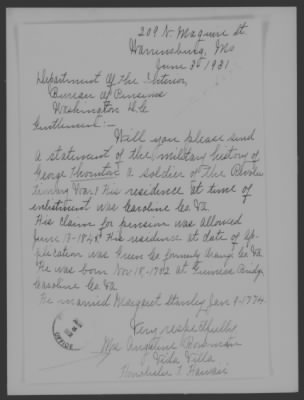 209 N. Maguire St.
Warrensburg, Mo
June 30 1931
Department Of the Interior
Bureau of Pensions
Washington D.C.
Gentlement:-
Will you please send
a statement of the military history of
George Thornton a soldier of the Revolu
tionary War? His residence at time of
enlistment was Caroline Co. Va.
His claim for pension was allowed
June His residence at date of Ap-
plication was Green Co. formerly Orange Co. Va.
He was born Nov 18, at Guiness Bridge
Caroline Co.
He married Margaret Stanley Jan 9-1774.
Very respectfully
Mrs Angeline Bowman
Vida Villa
Honolulu T. Hawaii
OFFICE